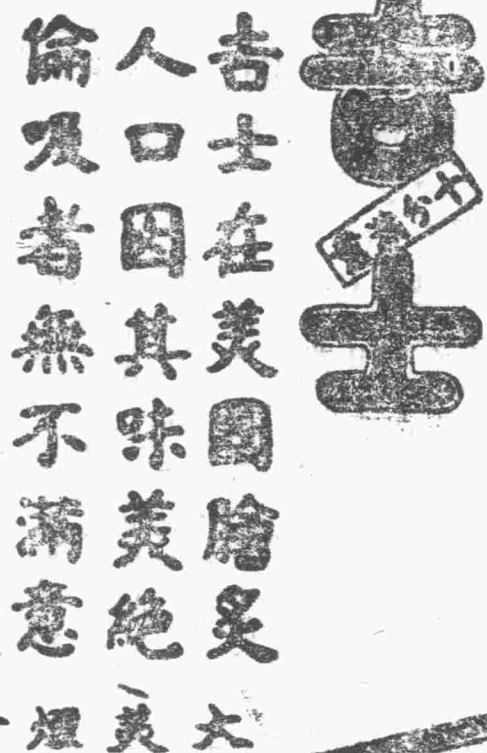 吉士
十分
吉士在美國膾炙
人口因其味美絕
倫吸者無不滿意
大
美
煙